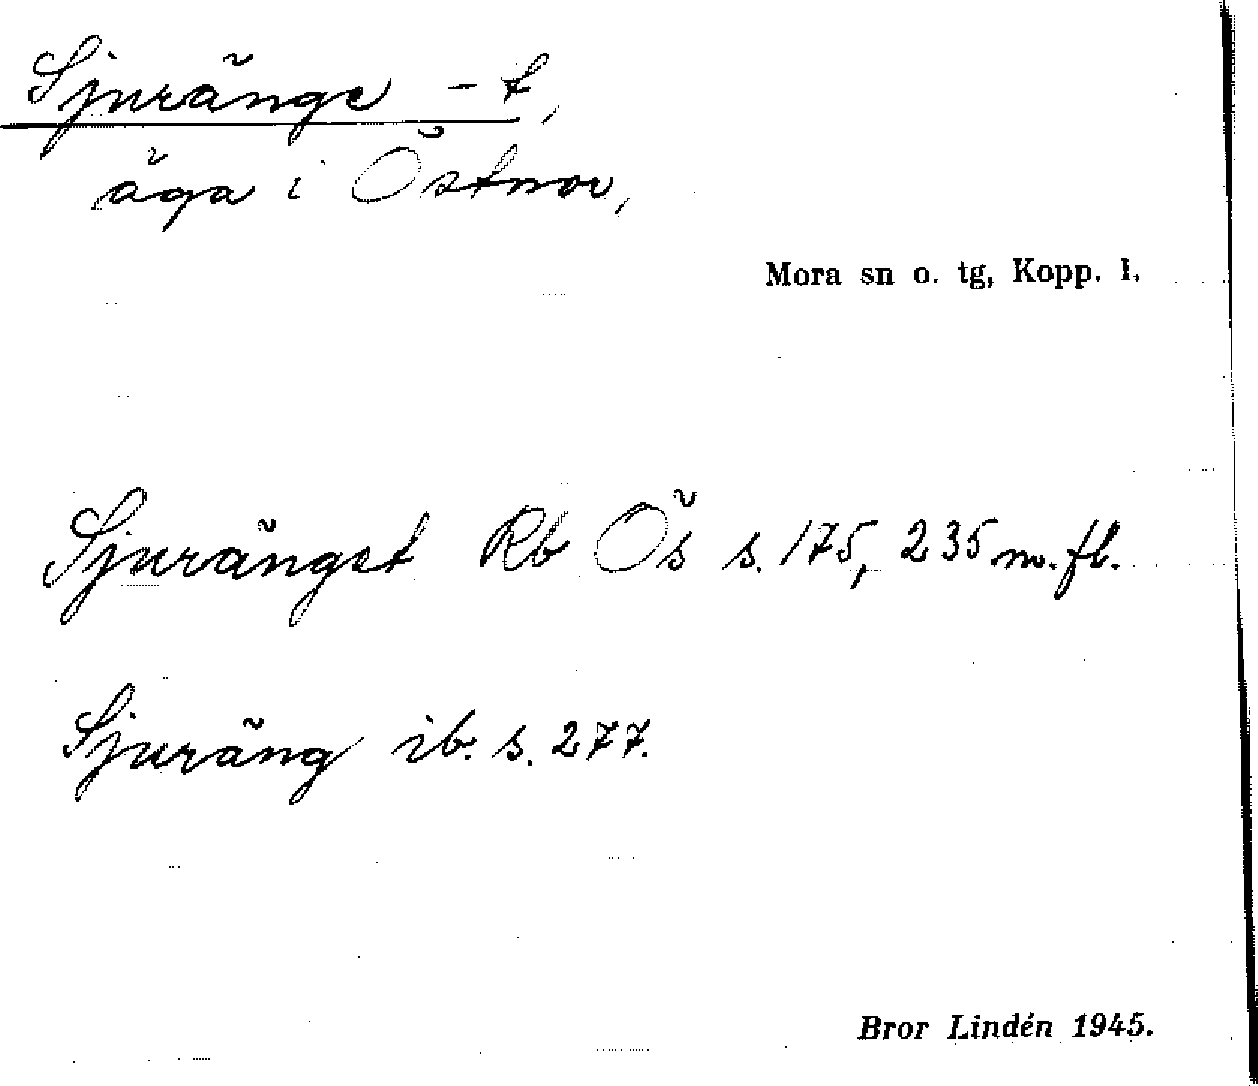 Sjuränge -t,
äga i Östnor,
Mora sn o. tg, Kopp. l.
Sjuränget Rb Ös s. 175, 235 m. fl.
Sjuräng ib. s. 277.
Bror Lindén 1945.